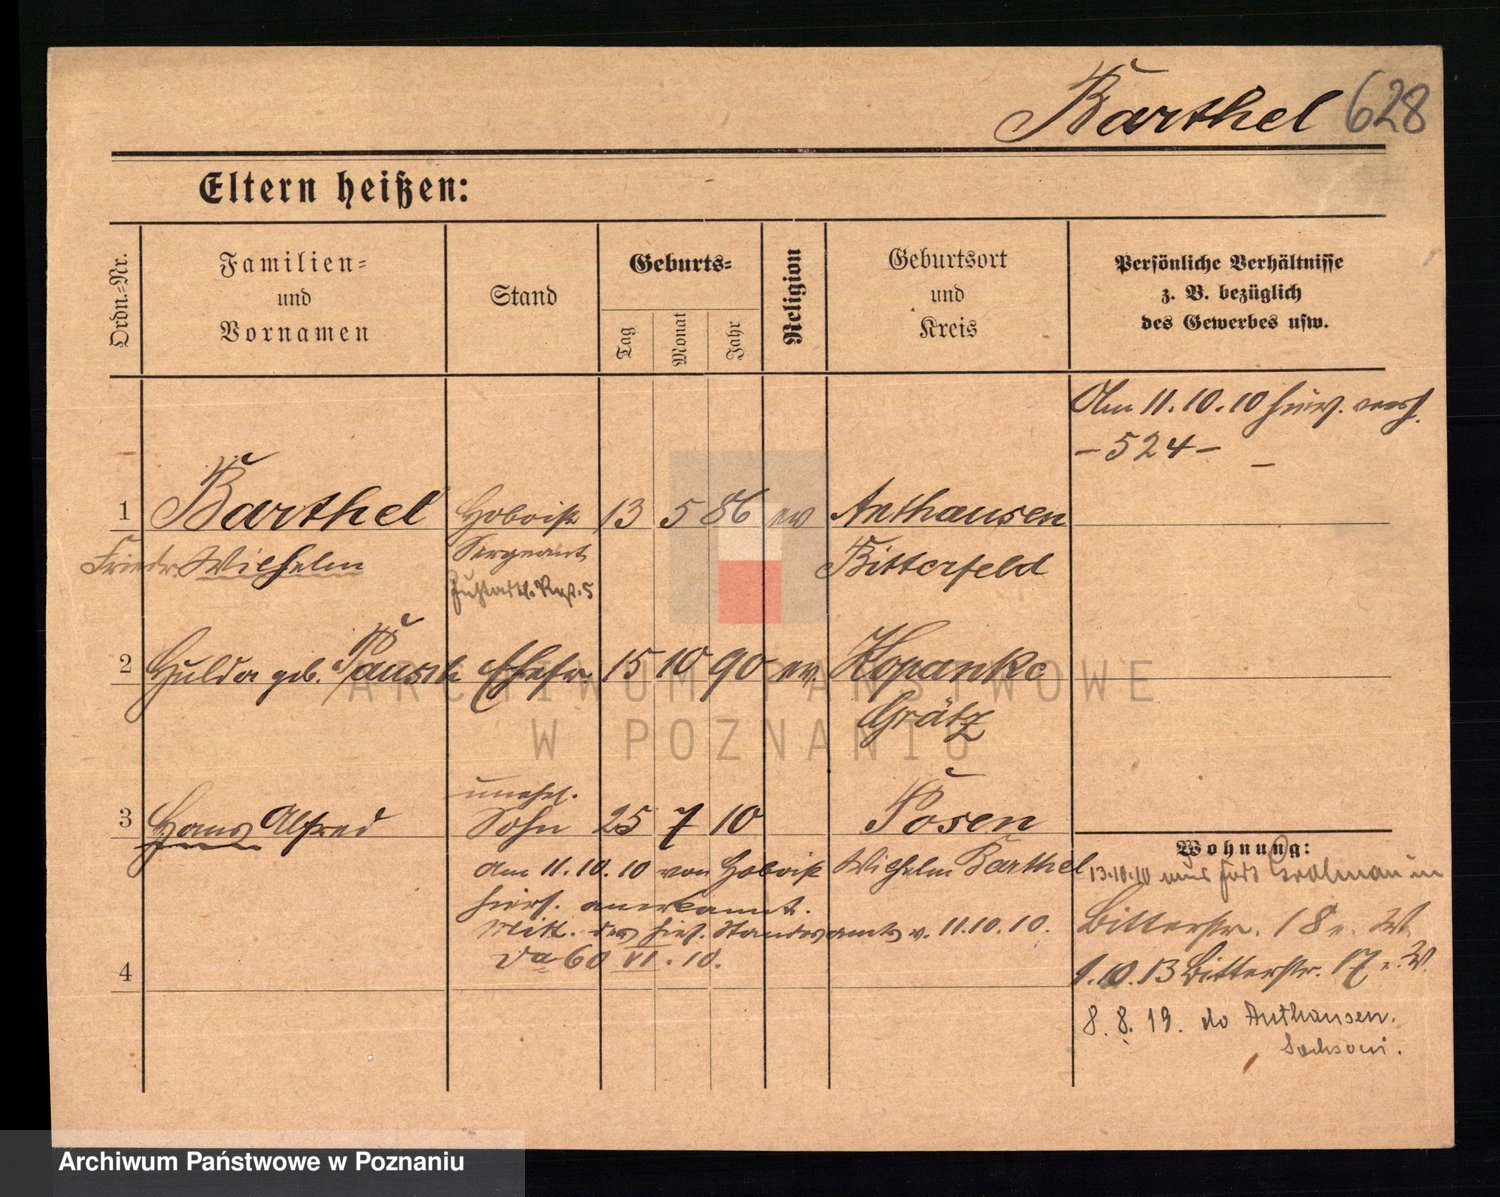 Barthel 628
Eltern heißen:
Ordn.-Nr.
Familien-
und
Vornamen
Stand
Geburts-
Tag
Monat
Jahr
Religion
Geburtsort
und
Kreis
Persönliche Verhältnisse
z. B. bezüglich
des Gewerbes usw.
Am 11.10.10 hier.
- 524 -
1 Barthel Hoboist 13 5 86 ev Anthausen
Friedr. Wilhelm Sergeant Bitterfeld
2 Hulda geb. Ehefr. 15 10 90 ev. Kopanke
Grätz
unehel.
3 Hans Alfred Sohn 25 7 10 Posen
Wohnung:
am 11.10.10 von Hoboist Wilhelm Barthel
13.10.10 aus Grolman
hiers. anerkannt.
Bitterstr. 18
Mitt. des hies. Standesamts v. 11.10.10.
60 VI. 10.
4
1.10.13 Bitterstr. 17
8.8.19. do Anthausen.
ARCHIWUM PAŃSTWOWE
W POZNANIU
Archiwum Państwowe w Poznaniu